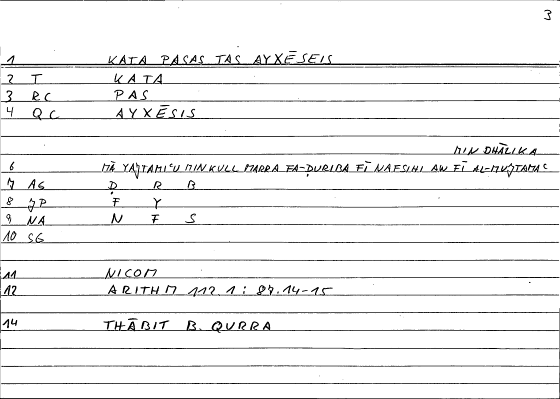 3
1 KATA PASAS TAS AYXĒSEIS
2 T KATA
3 RC PAS
4 QC AYXĒSIS
MIN DHĀLIKA
6 MĀ YAǦTAMIʿU MIN KULL MARRA FA-ḌURIBA FĪ NAFSIHI AW FĪ AL-MUǦTAMAʿ
7 AG Ḍ R B
8 ǦP F Y
9 NA N F S
10 SG
11 NICOM
12 ARITHM 112.1: 87.14-15
14 THĀBIT B. QURRA